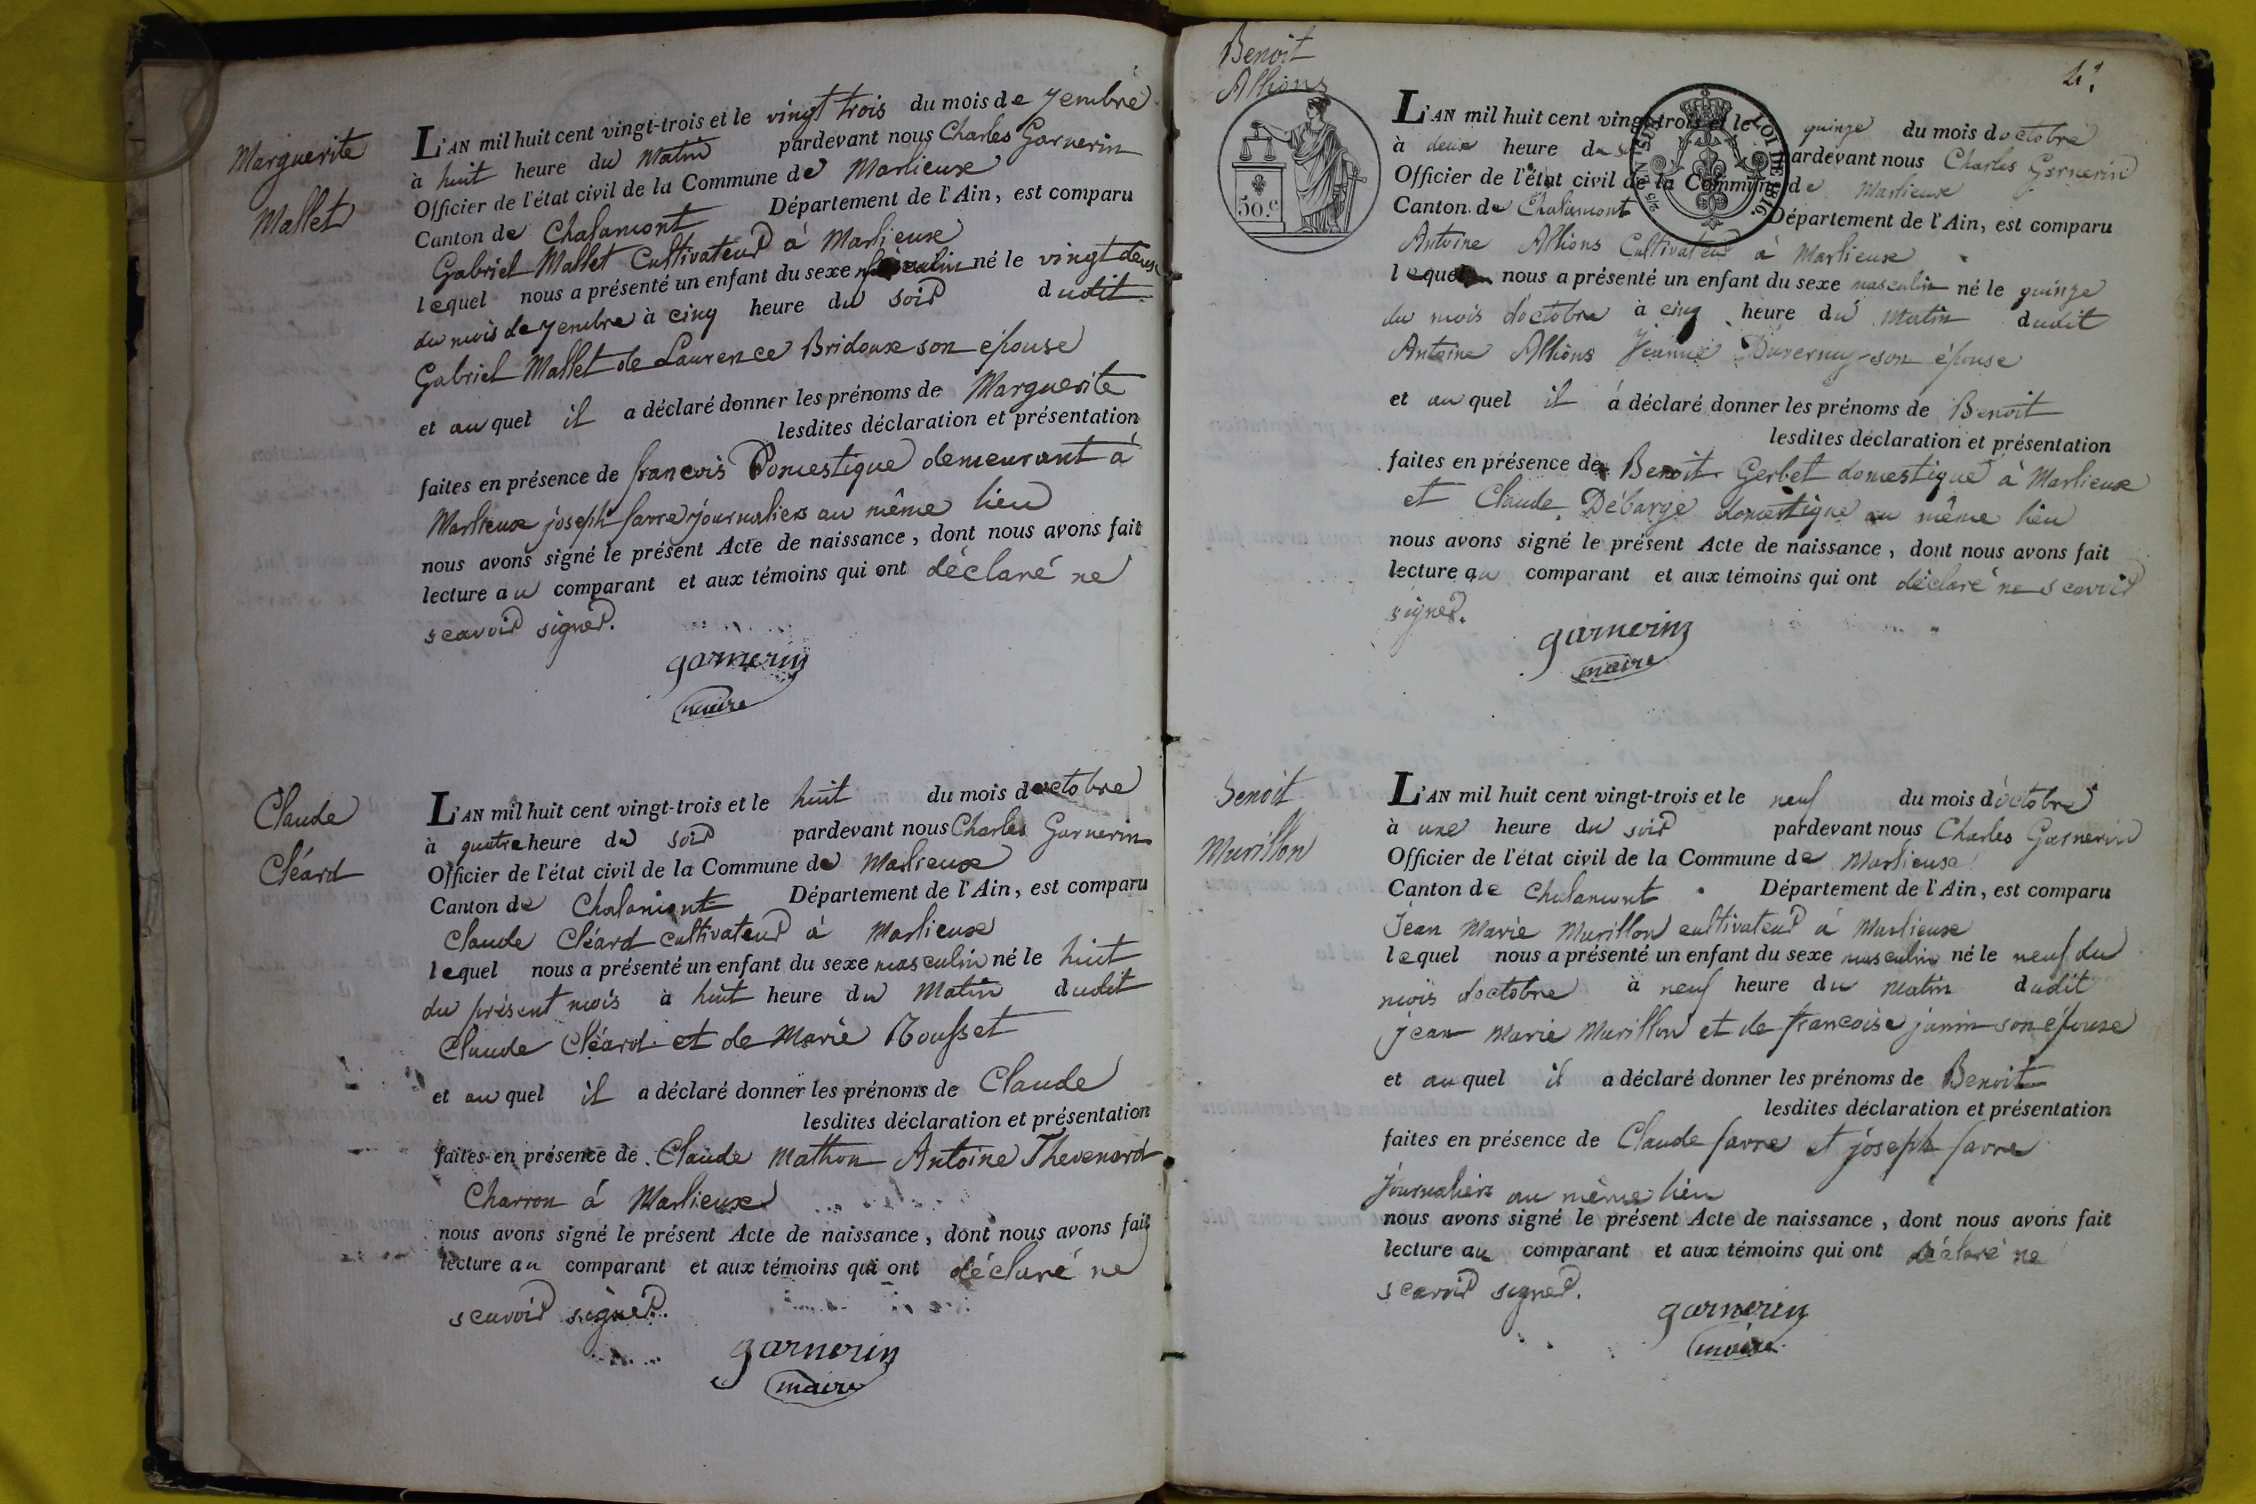 Marguerite
Mallet
L'AN mil huit cent vingt-trois et le vingt trois du mois de 7embre
à huit heure du Matin pardevant nous Charles Garnerin
Officier de l'état civil de la Commune de Marlieux
Canton de Chalamont Département de l'Ain, est comparu
Gabriel Mallet Cultivateur à Marlieux
lequel nous a présenté un enfant du sexe né le vingt deux
du mois de 7embre à cinq heure du soir dudit
Gabriel Mallet de Laurence Bridoux son épouse
et au quel il a déclaré donner les prénoms de Marguerite
lesdites déclaration et présentation
faites en présence de francois Domestique demeurant à
Marlieux joseph favre journaliers au même lieu
nous avons signé le présent Acte de naissance, dont nous avons fait
lecture au comparant et aux témoins qui ont déclaré ne
scavoir signer.
garnerin
maire
Claude
Cléard
L'AN mil huit cent vingt-trois et le huit du mois doctobre
à quatre heure du soir pardevant nous Charles Garnerin
Officier de l'état civil de la Commune de Marlieux
Canton de Chalamont Département de l'Ain, est comparu
Claude Cléard cultivateur à Marlieux
lequel nous a présenté un enfant du sexe masculin né le huit
du présent mois à huit heure du Matin dudit
Claude Cléard et de Marie Rousset
et au quel il a déclaré donner les prénoms de Claude
lesdites déclaration et présentation
faites en présence de Claude Mathon Antoine Thevenard
Charron à Marlieux
nous avons signé le présent Acte de naissance, dont nous avons fait
lecture au comparant et aux témoins qui ont déclaré ne
scavoir signer.
garnerin
maire
Benoit
Allions
50.c
LOI DE 1816
L'AN mil huit cent vingt-trois et le quinze du mois doctobre
à deux heure du soir pardevant nous Charles Garnerin
Officier de l'état civil de la Commune de Marlieux
Canton de Chalamont Département de l'Ain, est comparu
Antoine Allions Cultivateur à Marlieux
lequel nous a présenté un enfant du sexe masculin né le quinze
du mois d'octobre à cinq heure du Matin dudit
Antoine Allions Jeanne Duvernay son épouse
et au quel il à déclaré donner les prénoms de Benoit
lesdites déclaration et présentation
faites en présence de Benoit Gerbet domestique à Marlieux
et Claude Débarge domestique au même lieu
nous avons signé le présent Acte de naissance, dont nous avons fait
lecture au comparant et aux témoins qui ont déclaré ne scavoir
signer.
garnerin
maire
Benoit
Murillon
L'AN mil huit cent vingt-trois et le neuf du mois d'octobre
à une heure du soir pardevant nous Charles Garnerin
Officier de l'état civil de la Commune de Marlieux
Canton de Chalamont Département de l'Ain, est comparu
Jean Marie Murillon cultivateur à Marlieux
lequel nous a présenté un enfant du sexe masculin né le neuf du
mois d'octobre à neuf heure du matin dudit
jean Marie Murillon et de francoise janin son épouse
et au quel il a déclaré donner les prénoms de Benoit
lesdites déclaration et présentation
faites en présence de Claude favre et joseph favre
journaliers au même lieu
nous avons signé le présent Acte de naissance, dont nous avons fait
lecture au comparant et aux témoins qui ont déclaré ne
scavoir signer.
garnerin
maire